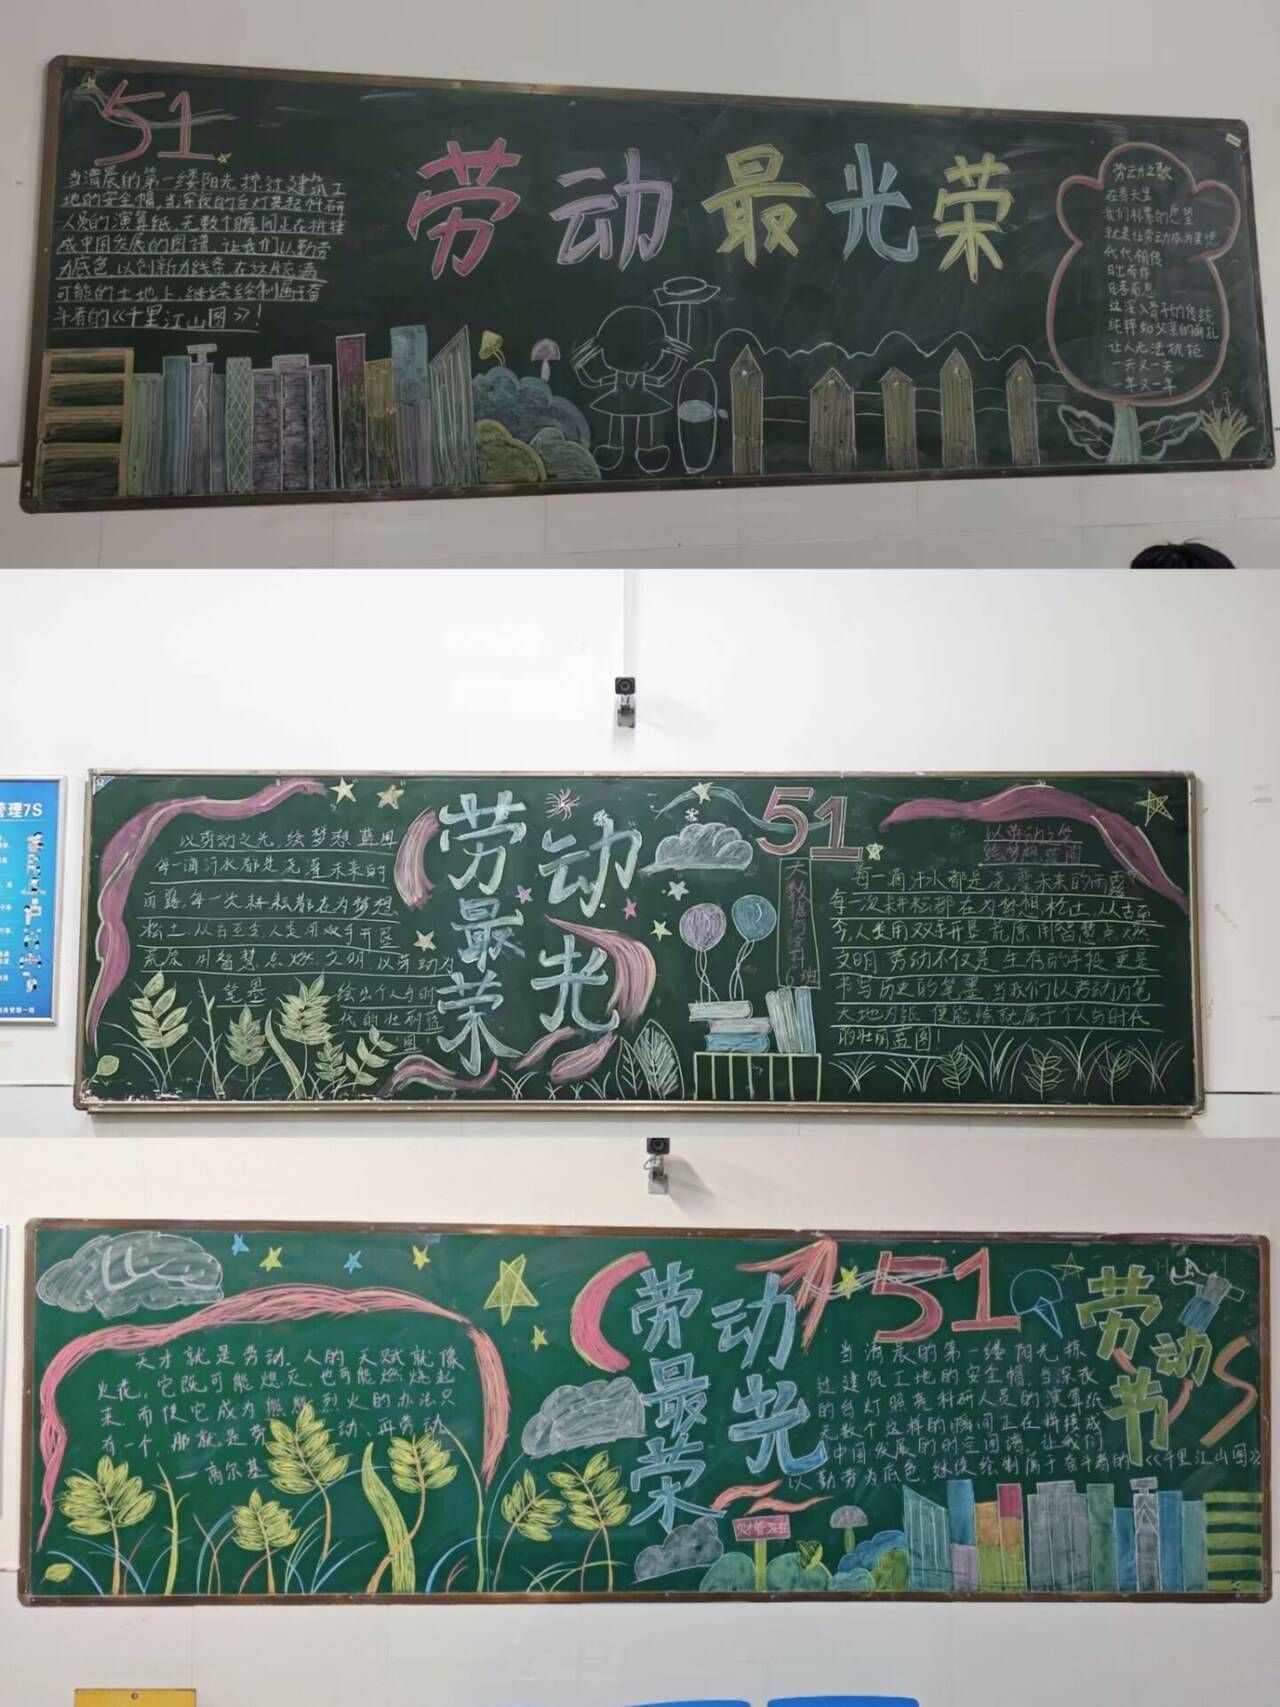 51
当清晨的第一缕阳光掠过建筑工
地的安全帽,当深夜的台灯亮起科研
人员的演算纸、无数个瞬间正在拼接
成中国发展的图谱,让我们以勤劳
为底色,以创新为线条,在这片充满
可能的土地上,继续绘制属于奋
斗者的《千里江山图》!
劳动最光荣
劳动之歌
在春天里
我们朴素的愿望
就是让劳动成为美德
代代相传
日出而作
日落而息
这深入骨子的传统
纯粹如父亲的面孔
让人无法抗拒
一天又一天
一年又一年
管理7S
以劳动之光,绘梦想蓝图
每一滴汗水都是浇灌未来的
雨露,每一次耕耘都在为梦想
松土,从古至今,人类用双手开垦
荒原,用智慧点燃文明,以劳动为
笔墨 绘出个人与时
代的壮丽蓝
图!
劳动
最光
荣
51
大数据与会计6班
以劳动之笔
绘梦想蓝图
每一滴汗水都是浇灌未来的雨露
每一次耕耘都在为梦想松土,从古至
今,人类用双手开垦荒原,用智慧点燃
文明,劳动不仅是生存的手段,更是
书写历史的笔墨,当我们以劳动为笔
大地为纸,便能绘就属于个人与时代
的壮丽蓝图!
天才就是劳动,人的天赋就像
火花,它既可能熄灭,也可能燃烧起
来,而使它成为熊熊烈火的办法只
有一个,那就是劳动、再劳动
—高尔基
劳动
最光
荣
51
劳动
节
当清晨的第一缕阳光掠
过建筑工地的安全帽,当深夜
的台灯照亮科研人员的演算纸
无数个这样的瞬间正在拼接成
中国发展的时空图谱,让我们
以勤劳为底色,继续绘制属于奋斗者的《千里江山图》